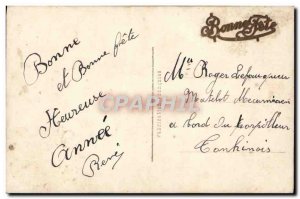 Bonne
et Bonne fête
Heureuse
Année
René
Bonne Fête
Mr Roger Lefouqueu
Matelot Mecanicien
a bord du torpilleur
Tonkinois
CPAPHIL.COM